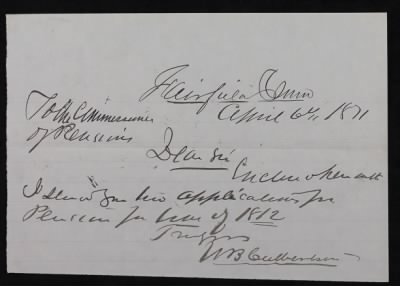 Fairfield Tenn
April 6th, 1871
To the Commissioner
of Pensions
Dear Sir
Enclosed herewith
I send you two applications for
Pension for War of 1812
Truly yrs
W B Culbertson